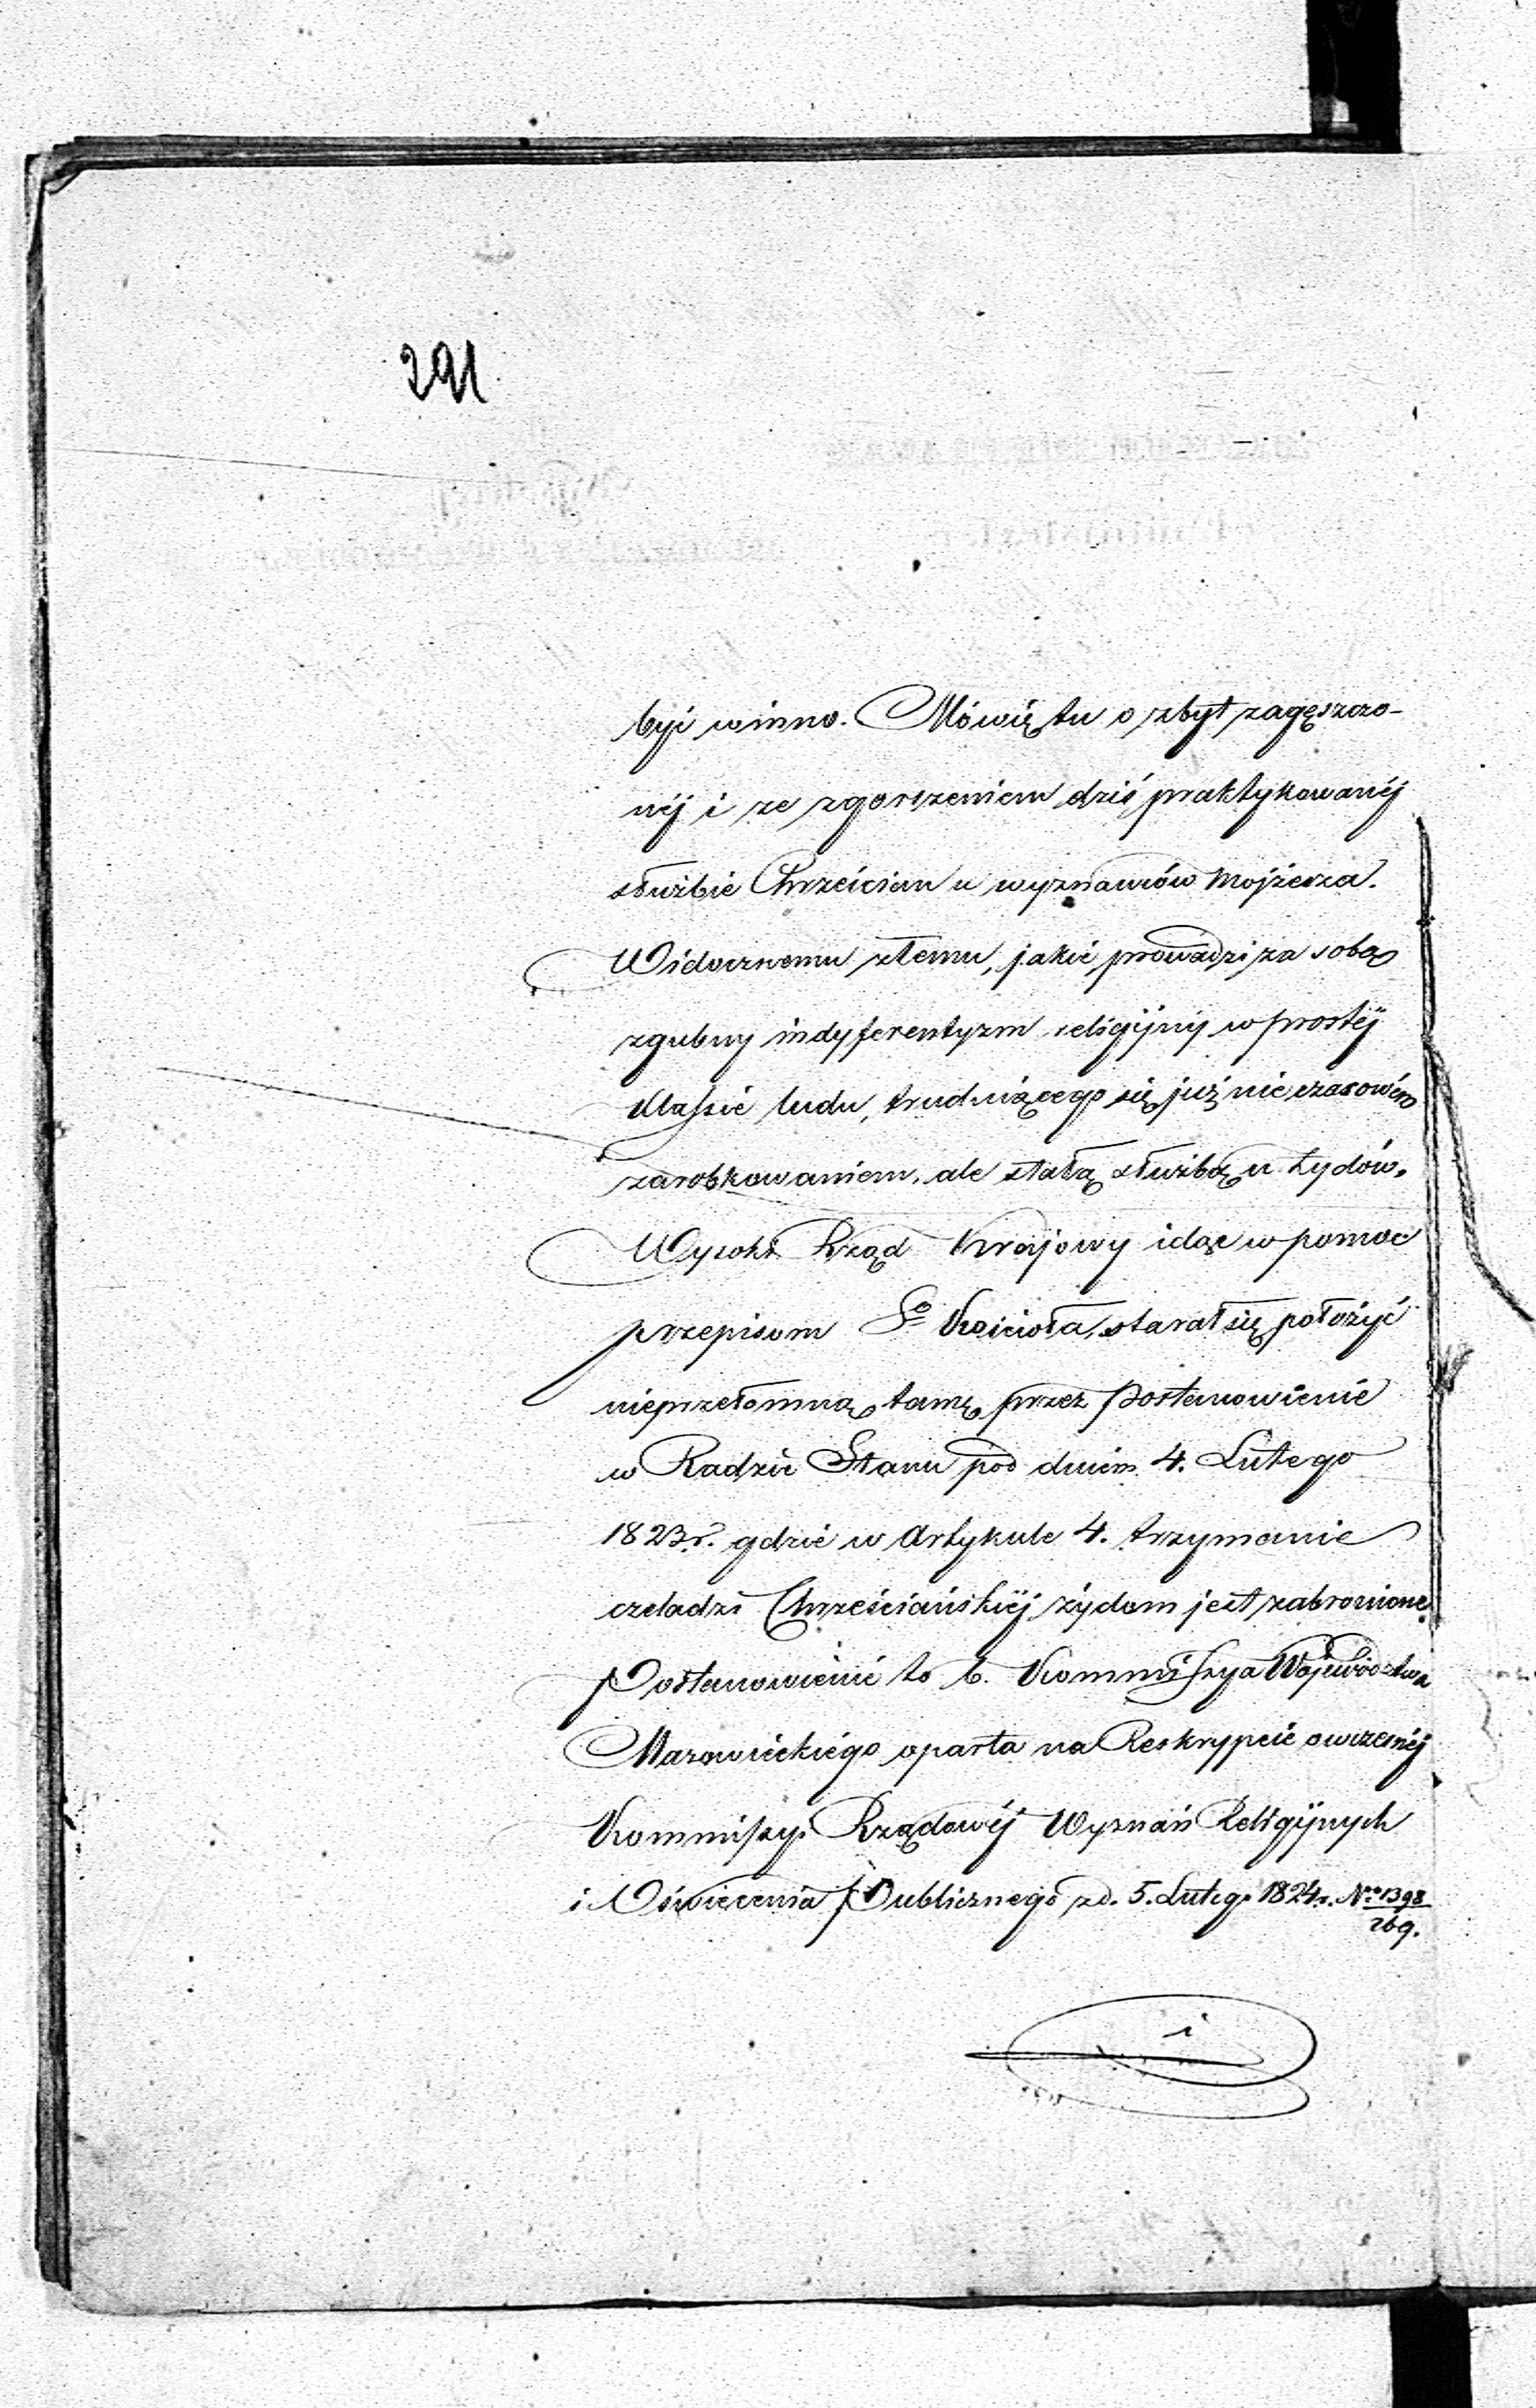 291
być winno. Mówię tu o zbyt zagęszczo-
néj i ze zgorszeniem dziś praktykowanéj
służbie Chrześcian u wyznawców Mojżesza.
Widocznemu złemu, jakie prowadzi za sobą
zgubny indyferentyzm religijny w prostéj
klassie ludu, trudniącego się już nie czasowém
zarobkowaniem, ale stałą służbą u Żydów,
Wysoki Rząd Krajowy idąc w pomoc
przepisom Sgo Kościoła, starał się położyć
nieprzełomną tamę przez Postanowienie
w Radzie Stanu pod dniem 4. Lutego
1823 r. gdzie w Artykule 4. trzymanie
czeladzi Chrześciańskiéj żydom jest zabronione.
Postanowienie to b. Kommissya Województwa
Mazowieckiego oparta na Reskrypcie owczesnéj
Kommissyi Rządowéj Wyznań Religijnych
i Oświecenia Publicznego z d. 5. Lutego 1824 r. Nro 1398/269.
i